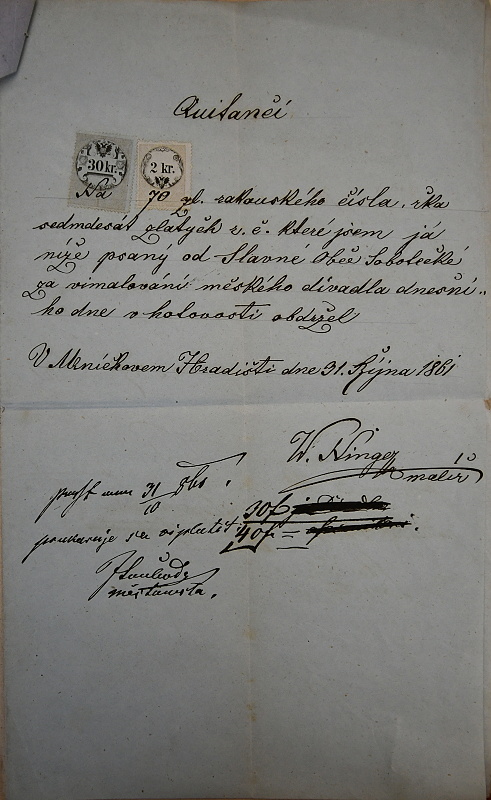 Quitancí
30 kr.
2 kr.
Na 70 zl. rakouského čísla, řka
sedmdesát zlatých r. č. které jsem já
níže psaný od Slavné Obce Sobotecké
za vimalování měského divadla dnešní„
ho dne v hotovosti obdržel
V Mnichovem Hradišti dne 31. Října 1861
W. Ginge
malíř
31
10
poukazuje se viplatit
30f
40f =
měšťanosta.